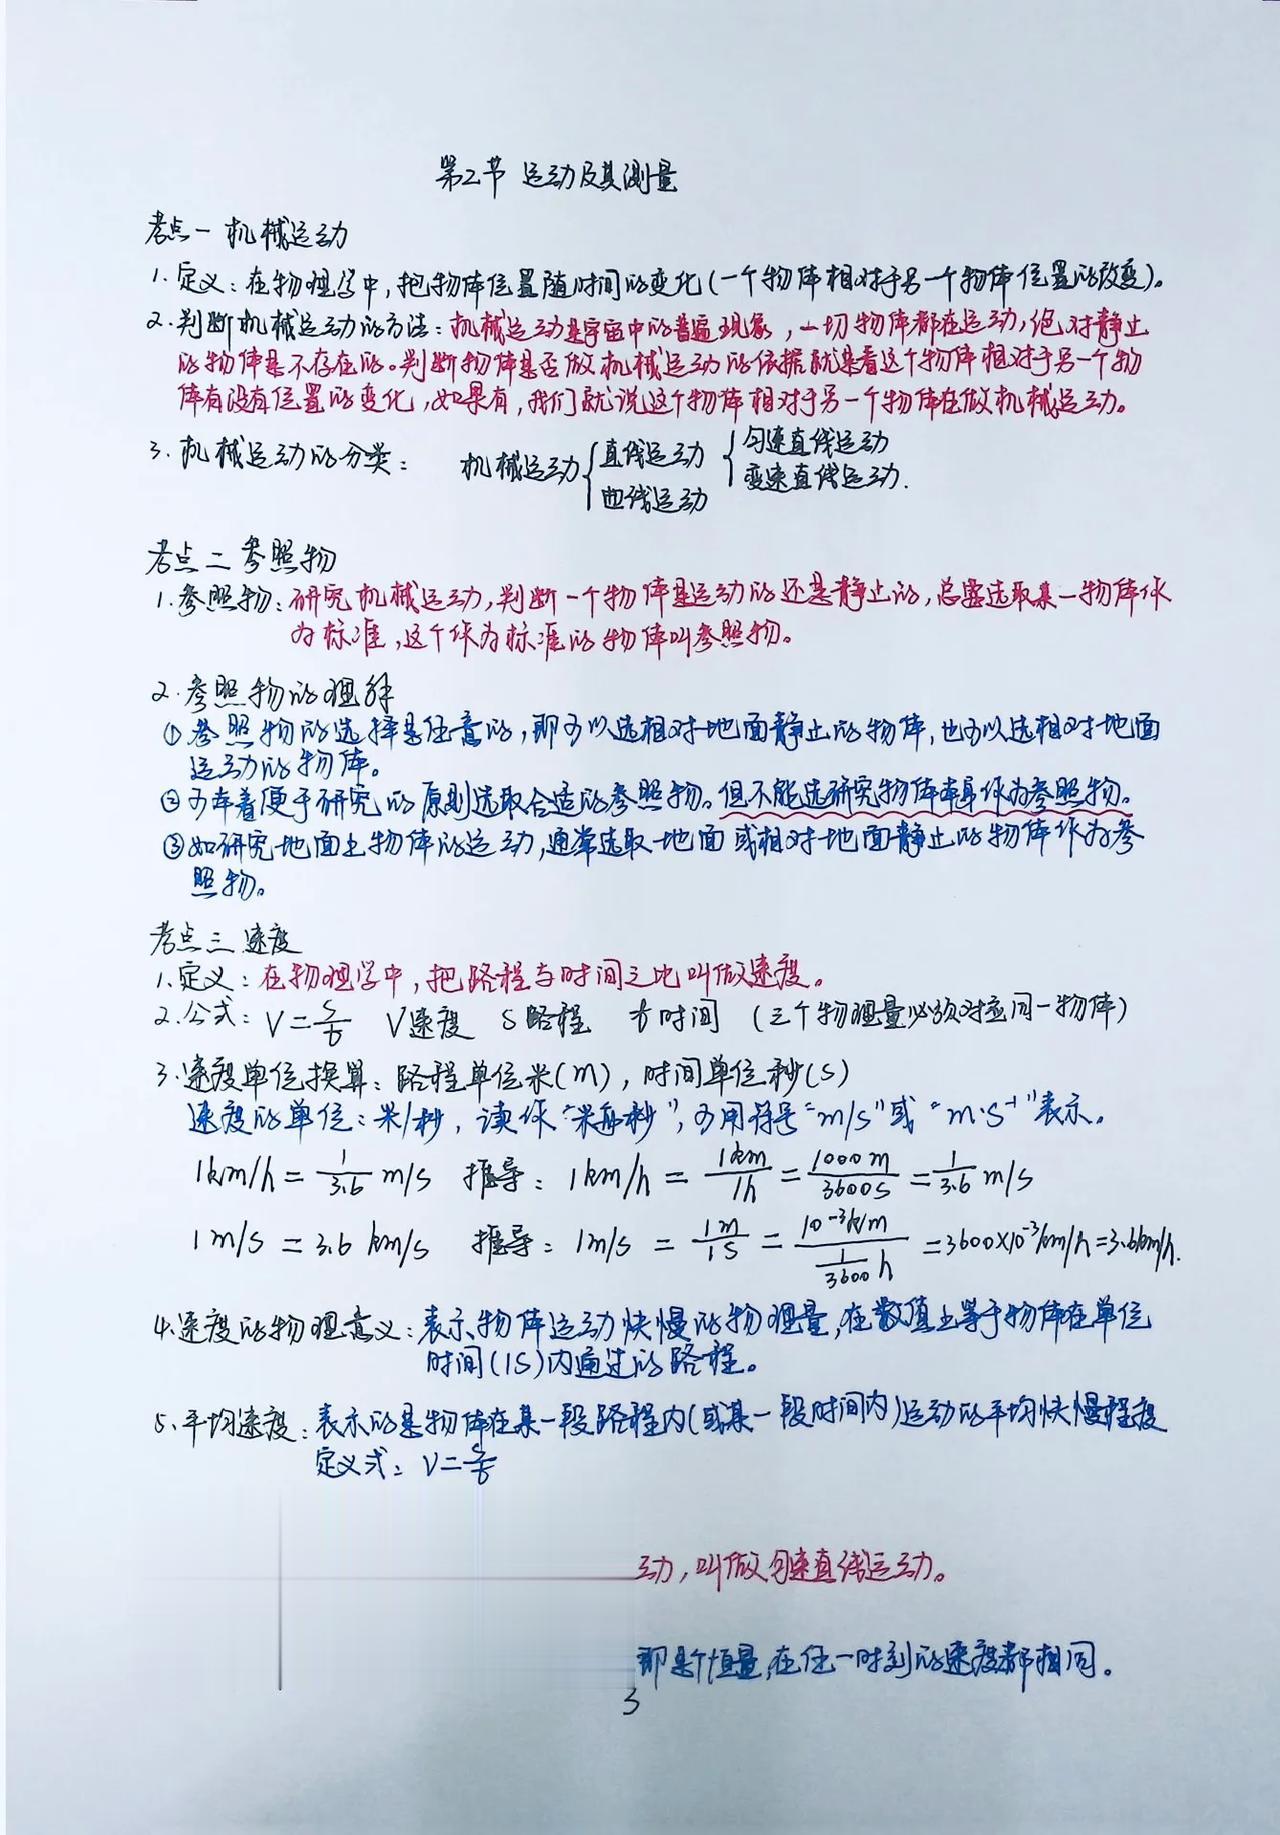 第二节 运动及其测量
考点一 机械运动
1.定义：在物理学中，把物体位置随时间的变化(一个物体相对于另一个物体位置的改变)。
2.判断机械运动的方法：机械运动是宇宙中的普遍现象，一切物体都在运动，绝对静止
的物体是不存在的。判断物体是否做机械运动的依据就是看这个物体相对于另一个物
体有没有位置的变化，如果有，我们就说这个物体相对于另一个物体在做机械运动。
3.机械运动的分类： 机械运动{直线运动 {匀速直线运动
变速直线运动.
曲线运动
考点二 参照物
1.参照物：研究机械运动，判断一个物体是运动的还是静止的，总要选取某一物体作
为标准，这个作为标准的物体叫参照物。
2.参照物的理解
①参照物的选择是任意的，即可以选相对地面静止的物体，也可以选相对地面
运动的物体。
②可本着便于研究的原则选取合适的参照物。但不能选研究物体本身作为参照物。
③如研究地面上物体的运动，通常选取地面或相对地面静止的物体作为参
照物。
考点三 速度
1.定义：在物理学中，把路程与时间之比叫做速度。
2.公式：V=s/t V速度 S路程 t时间 (三个物理量必须对应同一物体)
3.速度单位换算：路程单位米(m)，时间单位秒(s)
速度的单位：米/秒，读作“米每秒”，可用符号“m/s”或“m·s⁻¹”表示。
1km/h=1/3.6 m/s 推导：1km/h=1km/1h=1000m/3600s=1/3.6 m/s
1m/s=3.6 km/s 推导：1m/s=1m/1s=10⁻³km/(1/3600 h)=3600×10⁻³km/h=3.6km/h.
4.速度的物理意义：表示物体运动快慢的物理量，在数值上等于物体在单位
时间(1s)内通过的路程。
5.平均速度：表示的是物体在某一段路程内(或某一段时间内)运动的平均快慢程度
定义式：V=s/t
动，叫做匀速直线运动。
即是个恒量，在任一时刻的速度都相同。
3